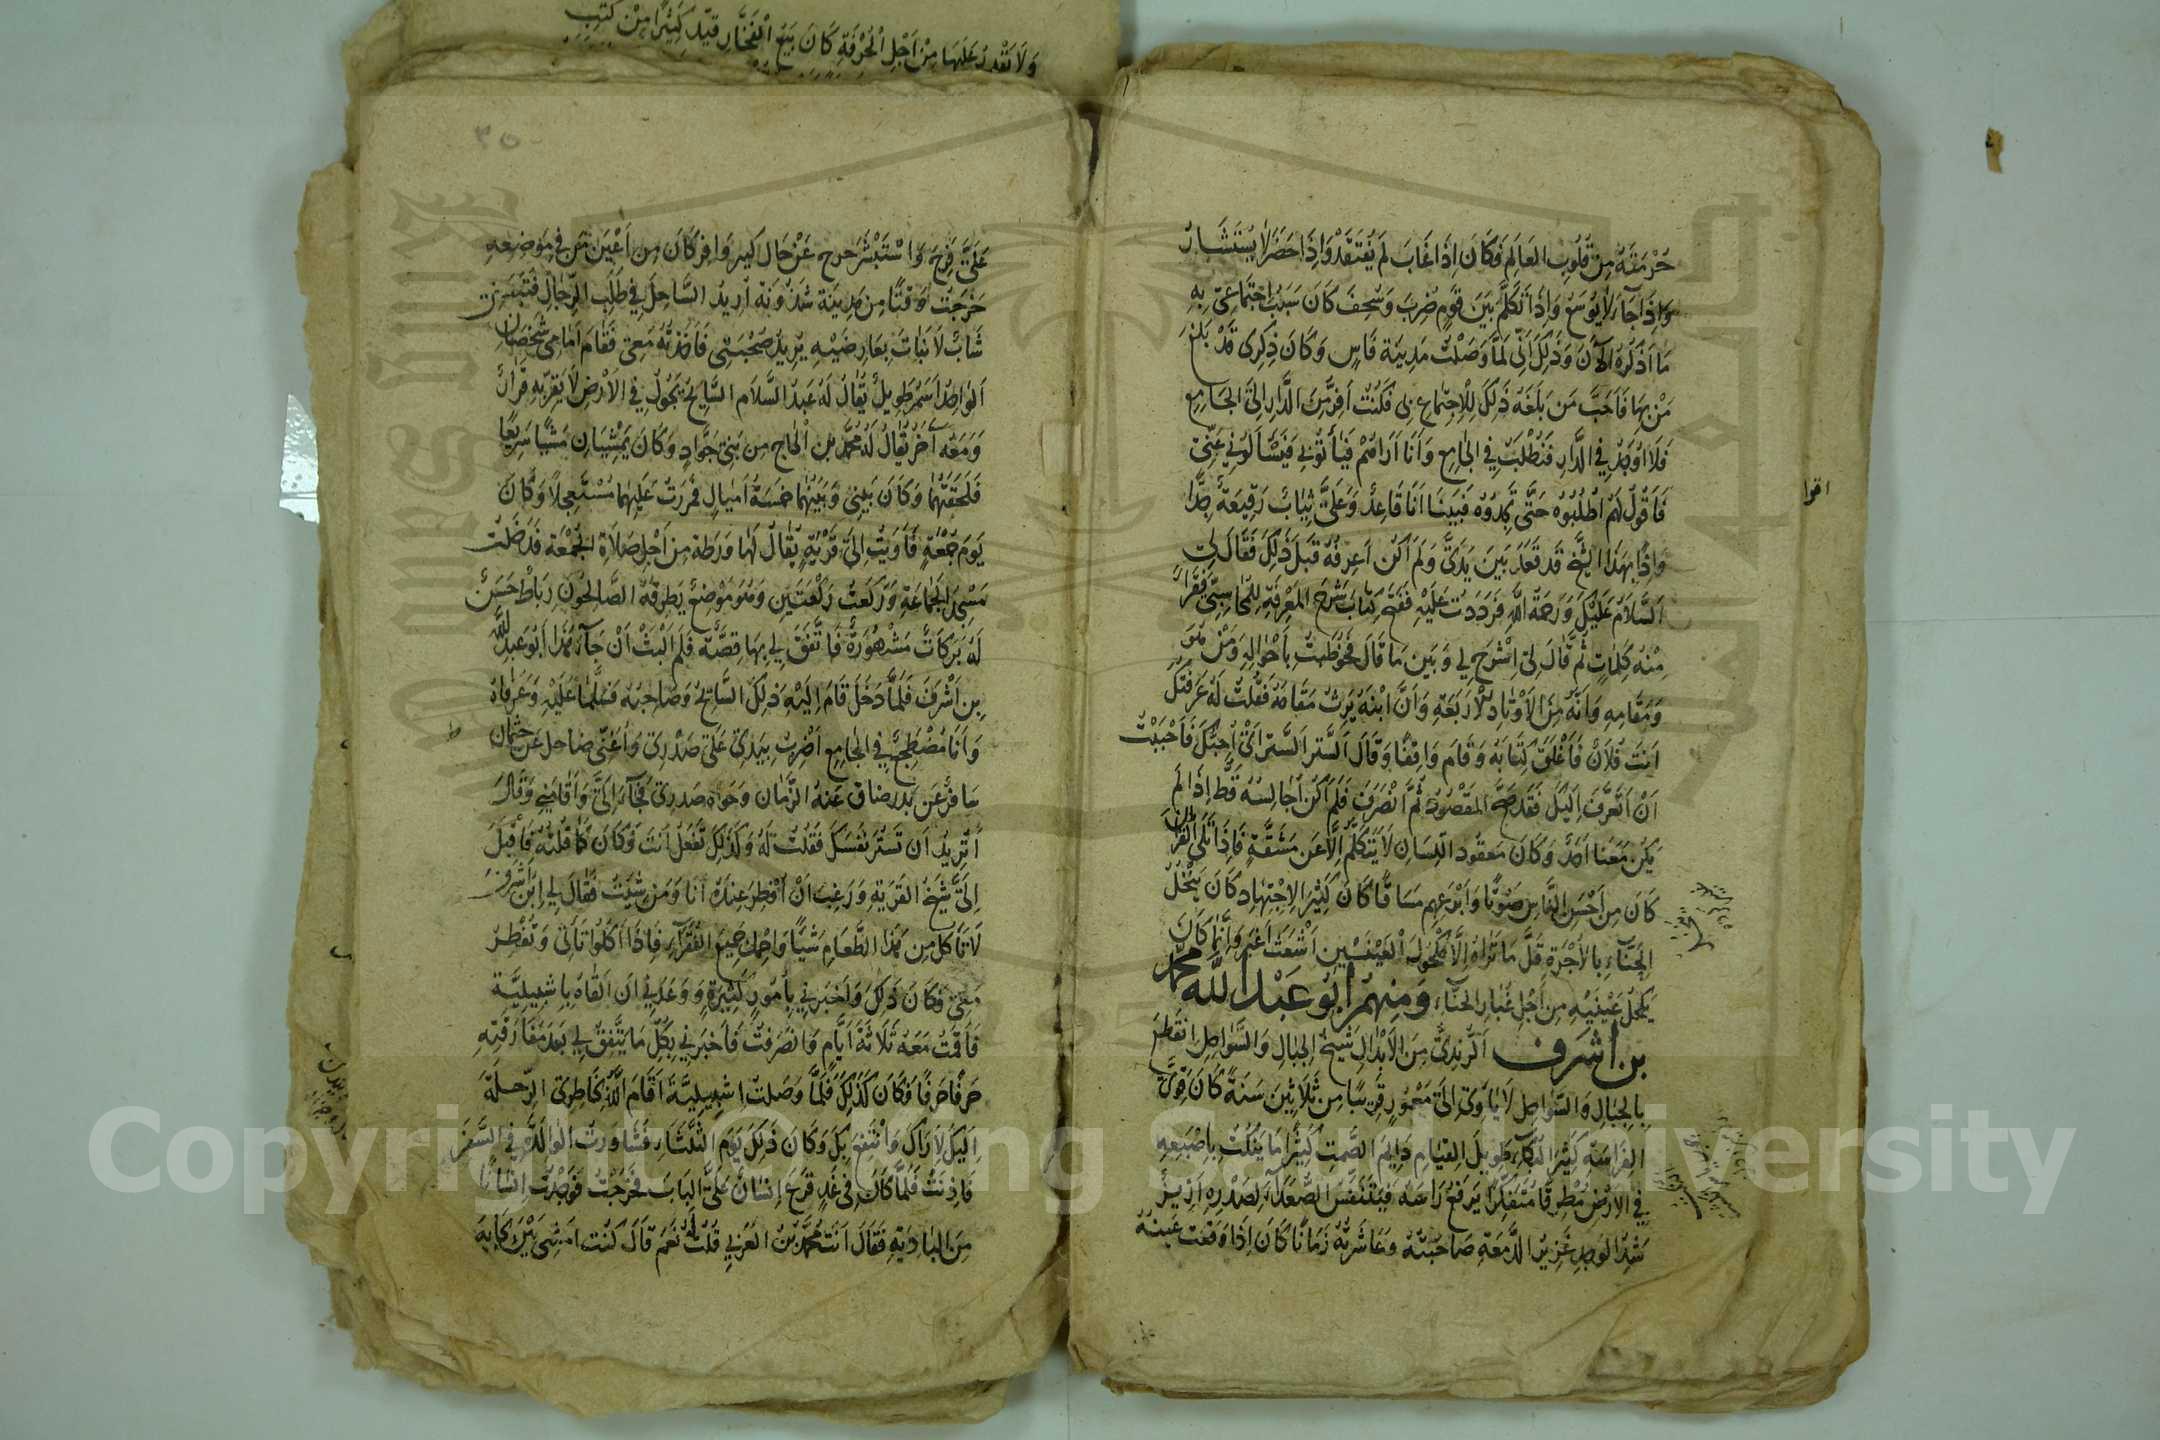 حُرْمَتَهُ مِنْ قُلُوبِ العَالَمِ فَكَانَ اِذَا غَابَ لَمْ يُفْتَقَدْ وَاِذَا حَضَرَ لَا يُسْتَشَارُ
وَاِذَا جَآءَ لَا يُوَسَّعُ وَاِذَا تَكَلَّمَ بَيْنَ قَوْمٍ ضُرِبَ وَسُخِفَ كَانَ سَبَبُ اجْتِمَاعِيْ بِهِ
مَا اَذْكُرُهُ الآنَ وَذٰلِكَ اَنِّي لَمَّا وَصَلْتُ مَدِينَةَ فَاسٍ وَكَانَ ذِكْرِي قَدْ بَلَغَ
مَنْ بِهَا فَاَحَبَّ مَنْ بَلَغَهُ ذٰلِكَ لِلْاِجْتِمَاعِ بِي فَكُنْتُ اَفِرُّ مِنَ الدَّارِ اِلَى الْجَامِعِ
فَلَا اُوْجَدُ فِي الدَّارِ فَنُطْلَبُ فِي الْجَامِعِ وَاَنَا اَرَاهُمْ فَيَأتُونِي فَيَسْأَلُونِي عَنِّيْ
فَاَقُولُ لَهُمْ اُطْلُبُوهُ حَتَّى تَجِدُوهُ فَبَيْنَا اَنَا قَاعِدٌ وَعَلَيَّ ثِيَابٌ رَفِيعَةٌ جِدًّا
وَاِذَا بِهَذَا الشَّيْخِ قَدْ قَعَدَ بَيْنَ يَدَيَّ وَلَمْ اَكُنْ اَعْرِفُهُ قَبْلَ ذٰلِكَ فَقَالَ لِيْ
اَلسَّلَامُ عَلَيْكَ وَرَحْمَةُ اللهِ فَرَدَدْتُ عَلَيْهِ فَفَتَحَ كِتَابَ شَرْحِ المَعْرِفَةِ لِلْمُحَاسِبِيِّ فَقَرَأَ
مِنْهُ كَلِمَاتٍ ثُمَّ قَالَ لِيْ اشْرَحْ لِي وَبَيِّنْ مَا قَالَ فَخُوطِبْتُ بِاَحْوَالِهِ وَمَنْ هُوَ
وَمَقَامِهِ وَاَنَّهُ مِنَ الْاَوْتَادِ الْاَرْبَعَةِ وَاَنَّ ابْنَهُ يَرِثُ مَقَامَهُ فَقُلْتُ لَهُ عَرَفْتُكَ
اَنْتَ فُلَانٌ فَاَغْلَقَ كِتَابَهُ وَقَامَ وَاقِفًا وَقَالَ اَلسَّتْرَ السَّتْرَ اِنِّيْ اُحِبُّكَ فَاَحْبَبْتُ
اَنْ اَتَعَرَّفَ اِلَيْكَ فَقَدْ صَحَّ المَقْصُودُ ثُمَّ انْصَرَفَ فَلَمْ اَكُنْ اُجَالِسُهُ قَطُّ اِذَا لَمْ
يَكُنْ مَعَنَا اَحَدٌ وَكَانَ مَعْقُودَ اللِّسَانِ لَا يَتَكَلَّمُ اِلَّا عَنْ مَشَقَّةٍ فَاِذَا تَلَى الْقُرْاٰنَ
كَانَ مِنْ اَحْسَنِ النَّاسِ صَوْتًا وَاَبْرَعِهِمْ مَسَاقًا كَانَ كَثِيْرَ الاِجْتِهَادِ كَانَ يَنْخُلُ
الْحِنَّآءَ بِالْاُجْرَةِ قَلَّ مَا تَرَاهُ اِلَّا مَكْحُولَ الْعَيْنَيْنِ اَشْعَثَ اَغْبَرَ وَاِنَّمَا كَانَ
يَكْحُلُ عَيْنَيْهِ مِنْ اَجْلِ غُبَارِ الْحِنَّآءِ وَمِنْهُمْ اَبُو عَبْدِ اللهِ مُحَمَّد
بن اَشْرَف اَلرُّنْدِيُّ مِنَ الاَبْدَالِ شَيْخُ الْجِبَالِ وَالسَّوَاحِلِ انْقَطَعَ
بِالْجِبَالِ وَالسَّوَاحِلِ لَا يَأوِي اِلَى مَعْمُورٍ قَرِيْبًا مِنْ ثَلَاثِيْنَ سَنَةً كَانَ قَوِيَّ
الفِرَاسَةِ كَثِيْرَ البُكَآءِ طَوِيلَ القِيَامِ دَايِمَ الصَّمْتِ كَثِيْرًا مَا يَنْكُتُ بِاِصْبَعِهِ
فِي الْاَرْضِ مُطْرِقًا مُتَفَكِّرًا يَرْفَعُ رَاْسَهُ فَيَتَنَفَّسُ الصُّعَدَآءَ لِصَدْرِهِ اَزِيْزٌ
شَدِيْدَ الوَجْدِ غَزِيْرَ الدَّمْعَةِ صَاحَبْتُهُ وَعَاشَرْتُهُ زَمَانًا كَانَ اِذَا وَقَعَتْ عَيْنُهُ
اقوا
وَلَا نَقْدِرُ عَلَيْهَا مِنْ اَجْلِ الْحُرْفَةِ كَانَ يَبِيْعُ الْفَخَّارَ قَيَّدَ كَثِيْرًا مِنْ كُتُبِ
٣٥
عَلَيَّ فَرِحَ وَاسْتَبْشَرَ خرج عَنْ حَالٍ كَبِيرٍ وَافِرٍ كَانَ مِنْ اَعْيَنِ مَنْ فِي مَوْضِعِهِ
خَرَجْتُ وَقْتًا مِنْ مَدِيْنَةِ شَذُوْنَةَ اُرِيدُ السَّاحِلَ فِي طَلَبِ الرِّجَالِ فَتَبِعَنِيْ
شَابٌّ لَا نَبَاتَ بِعَارِضَيْهِ يُرِيدُ صُحْبَتِي فَاَخَذْتُهُ مَعِيْ فَقَامَ اَمَامِيْ شَخْصَانِ
اَلْوَاحِدُ اَسْمَرُ طَوِيْلٌ يُقَالُ لَهُ عَبْدُ السَّلَامِ السَّايِحُ يَجُولُ فِي الْاَرْضِ لَا يَقِرُّ بِهِ قَرَارٌ
وَمَعَهُ آخَرُ يُقَالُ لَهُ مُحَمَّدُ بْنُ الْحَاجِّ مِنْ بَنِيْ جَوَّادٍ وَكَانَ يَمْشِيَانِ مَشْيًا سَرِيْعًا
فَلَحِقْتُهُمَا وَكَانَ بَيْنِي وَبَيْنَهُمَا خَمْسَةُ اَمْيَالٍ فَمَرَرْتُ عَلَيْهِمَا مُسْتَعْجِلًا وَكَانَ
يَوْمَ جُمْعَةٍ فَاَوَيْتُ اِلَى قَرْيَةٍ يُقَالُ لَهَا وَرَطَةُ مِنْ اَجْلِ صَلَاةِ الْجُمْعَةِ فَدَخَلْتُ
مَسْجِدَ الْجَمَاعَةِ وَرَكَعْتُ رَكْعَتَيْنِ وَهُوَ مَوْضِعٌ يَطْرُقُهُ الصَّالِحُونَ رِبَاطٌ حَسَنٌ
لَهُ بَرَكَاتٌ مَشْهُورَةٌ فَاتَّفَقَ لِي بِهَا قِصَّةٌ فَلَمْ اَلْبَثْ اَنْ جَآءَ هَذَا اَبُو عَبْدِ اللهِ
بن اَشْرَفَ فَلَمَّا دَخَلَ قَامَ اِلَيْهِ ذٰلِكَ السَّائِحُ وَصَاحِبُهُ فَسَلَّمَا عَلَيْهِ وَعَرَفَاهُ
وَاَنَا مُضْطَجِعٌ فِي الْجَامِعِ اَضْرِبُ بِيَدِيْ عَلَى صَدْرِيْ وَاُغَنِّيْ ضاحك عن جُمَانِ
سَافِرٌ عَنْ بَدْرٍ ضَاقَ عَنْهُ الزَّمَانُ وَحَوَاهُ صَدْرِيْ فَجَآءَ اِلَيَّ وَاَقَامَنِي وَقَالَ
أَتُرِيدُ اَنْ تَسْتُرَ نَفْسَكَ فَقُلْتُ لَهُ وَكَذٰلِكَ تَفْعَلُ اَنْتَ وَكَانَ كَمَا قُلْتُهُ فَاَقْبَلَ
اِلَيَّ شَيْخُ القَرْيَةِ وَرَغِبَ اَنْ اُفْطِرَ عِنْدَهُ اَنَا وَمَنْ شِئْتُ فَقَالَ لِي ابْنُ اَشْرَفَ
لَا تَأكُلْ مِنْ هَذَا الطَّعَامِ شَيْئًا وَاحْمِلْ جَمِيعَ الفُقَرَآءِ فَاِذَا اَكَلُوا تَأتِي وَتُفْطِرُ
مَعِيْ فَكَانَ ذٰلِكَ وَاَخْبَرَنِي بِأُمُورٍ كَثِيْرَةٍ وَوَعَدَنِي اَنْ اَلْقَاهُ بِاِشْبِيلِيَّةَ
فَاَقَمْتُ مَعَهُ ثَلَاثَةَ اَيَّامٍ وَانْصَرَفْتُ فَاَخْبَرَنِي بِكُلِّ مَا يَتَّفِقُ لِي بَعْدَ مُفَارَقَتِهِ
حَرْفًا حَرْفًا وَكَانَ كَذٰلِكَ فَلَمَّا وَصَلْتُ اِشْبِيلِيَّةَ اَقَامَ اللهُ بِخَاطِرِيْ الرِّحْلَةَ
اِلَيْكَ لِاَرَاكَ وَاَنْتَفِعَ بِكَ وَكَانَ ذٰلِكَ يَوْمَ الثُّلَثَاءِ فَشَاوَرْتُ الوَالِدَةَ فِي السَّفَرِ
فَاَذِنَتْ فَلَمَّا كَانَ فِيْ غَدٍ قَرَعَ اِنْسَانٌ عَلَيَّ البَابَ فَخَرَجْتُ فَوَجَدْتُ اِنْسَانًا
مِنَ البَادِيَةِ فَقَالَ اَنْتَ مُحَمَّدُ بْنُ العَرَبِي قُلْتُ لَهُ نَعَمْ قَالَ كُنْتُ اَمْشِيْ بَيْنَ
Copyright © King Saud University